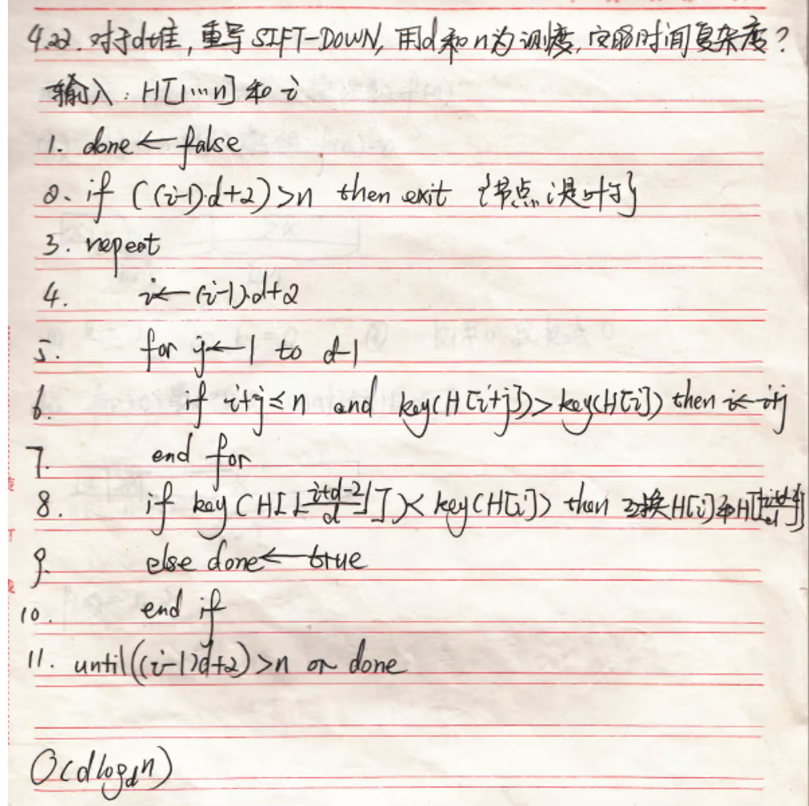 4.22. 对于d堆, 重写SIFT-DOWN, 用d和n为测度, 它的时间复杂度?
输入: H[1…n] 和 i
1. done←false
2. if ((i-1)·d+2)>n then exit {节点i是叶子}
3. repeat
4. i←(i-1)·d+2
5. for j←1 to d-1
6. if i+j≤n and key(H[i+j])>key(H[i]) then i←i+j
7. end for
8. if key(H[⌊(i+d-2)/d⌋])<key(H[i]) then 互换H[i]和H[⌊(i+d-2)/d⌋]
9. else done←true
10. end if
11. until((i-1)d+2)>n or done
O(dlog_d n)